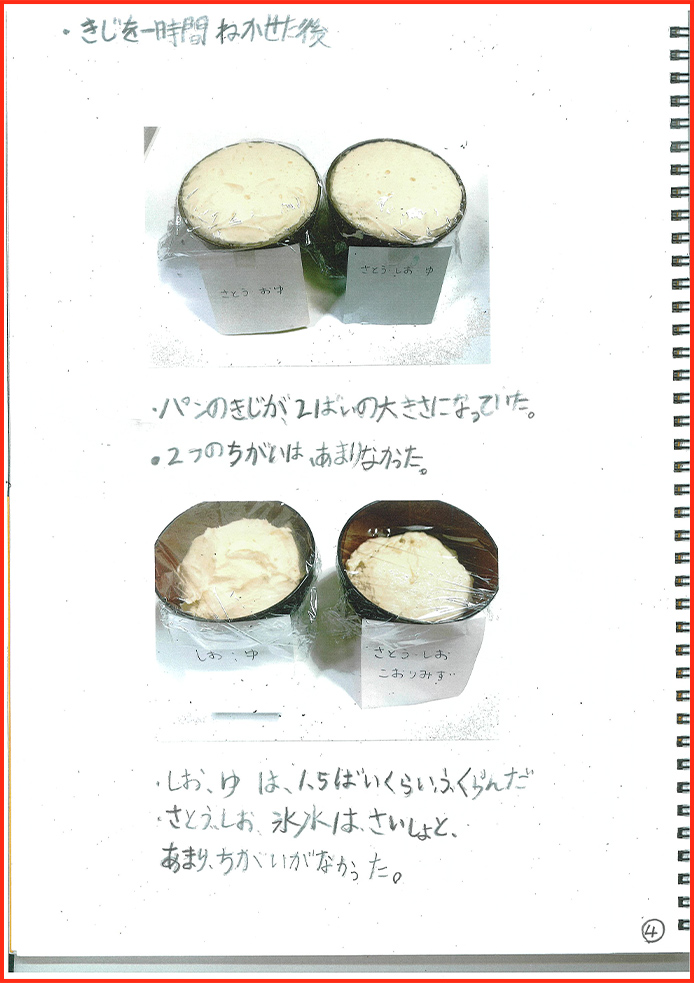 ・きじを一時間ねかせた後
さとう おゆ
さとう しお ゆ
・パンのきじが、2ばいの大きさになっていた。
・2つのちがいは、あまりなかった。
しお、ゆ
さとう・しお
こおりみず
・しお、ゆ は、1.5ばいくらい、ふくらんだ
・さとう、しお、氷水は、さいしょと、
あまり、ちがいがなかった。
④